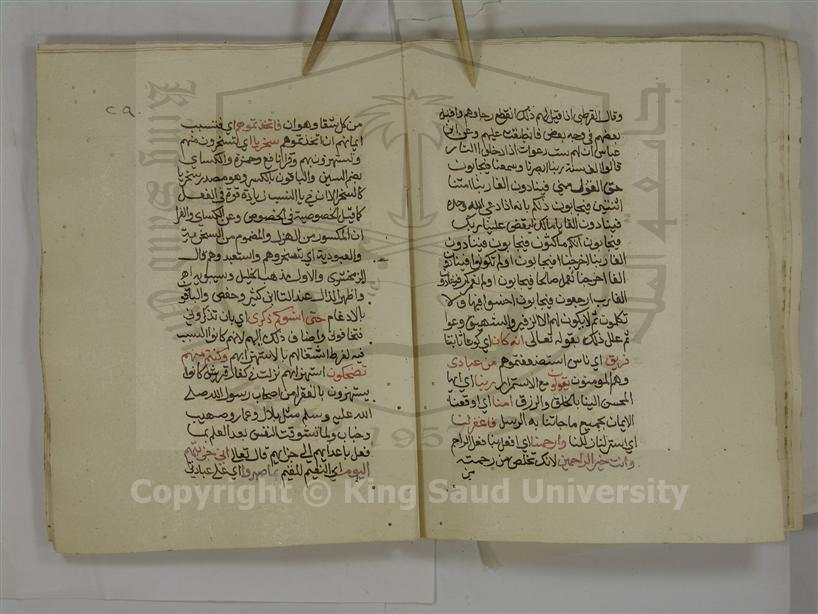 وقال القرطبي اذا قيل لهم ذلك انقطع رجاؤهم واقبل
بعضهم في وجه بعض فانطبقت عليهم وعن ابن
عباس ان لهم ست دعوات اذا دخلوا النار
قالوا الف سنة ربنا ابصرنا وسمعنا فيجابون
حق القول مني فينادون الفا ربنا امتنا
اثنتين فيجابون ذلكم بانه اذا دعي الله وحده
فينادون الفا يا مالك ليقض علينا ربك
فيجابون انكم ماكثون فيجابون فينادون
الفا ربنا اخرجنا فيجابون اولم تكونوا فينادون
الفا اخرجنا نعمل صالحا فيجابون اولم نعمركم فينادون
الفا رب ارجعون فيجابون اخسئوا فيها ولا
تكلمون ثم لا يكون لهم الا الزفير والشهيق وعوا
ثم علل ذلك بقوله تعالى انه كان اي كونا ثابتا
فريق اي ناس استضعفتموهم من عبادي
وهم المومنون يقولون مع الاستمرار ربنا ايها
المحسن الينا بالخلق والرزق امنا اي اوقعنا
الايمان بجميع ما جاتنا به الرسل فاغفر لنا
اي استر لنا زللنا وارحمنا اي افعل بنا فعل الراحم
وانت خير الراحمين لانك تخلص من رحمته
من
٢٩
من كل شقاء وهوان فاتخذتموهم اي فتسبب
ايمانهم ان اتخذتموهم سخريا اي تسخرون منهم
وتستهزون بهم وقرا نافع وحمزة والكساي
بضم السين والباقون بالكسر وهو مصدر سخر
كالسخر الا ان في يا النسب زيادة قوة في الفعل
كما قيل الخصوصية في الخصوص وعن الكساي والفرا
ان المكسور من الهزل والمضموم من السخرة
والعبودية اي تسخروهم واستعبدوهم قال
الزمخشري والاول مذهب الخليل وسيبويه اهـ
واظهر الذال عند التا ابن كثير وحفص والباقون
بالادغام حتى انسوكم ذكري اي بان تذكروني
فتخافوني واضاف ذلك اليهم لانهم كانوا السبب
فيه لفرط اشتغالهم بالاستهزا بهم وكنتم منهم
تضحكون استهزا بهم نزلت في كفار قريش كانوا
يستهزون بالفقرا من اصحاب رسول الله صلى
الله عليه وسلم مثل بلال وعمار وصهيب
وخباب ولما تشوقت النفس بعد العلم بما
فعل باعدايهم الي جزايهم قال تعالى اني جزيتهم
اليوم اي النعيم المقيم بما صبروا اي على عبادتي
جامعة الملك سعود
King Saud University
1957
Copyright © King Saud University